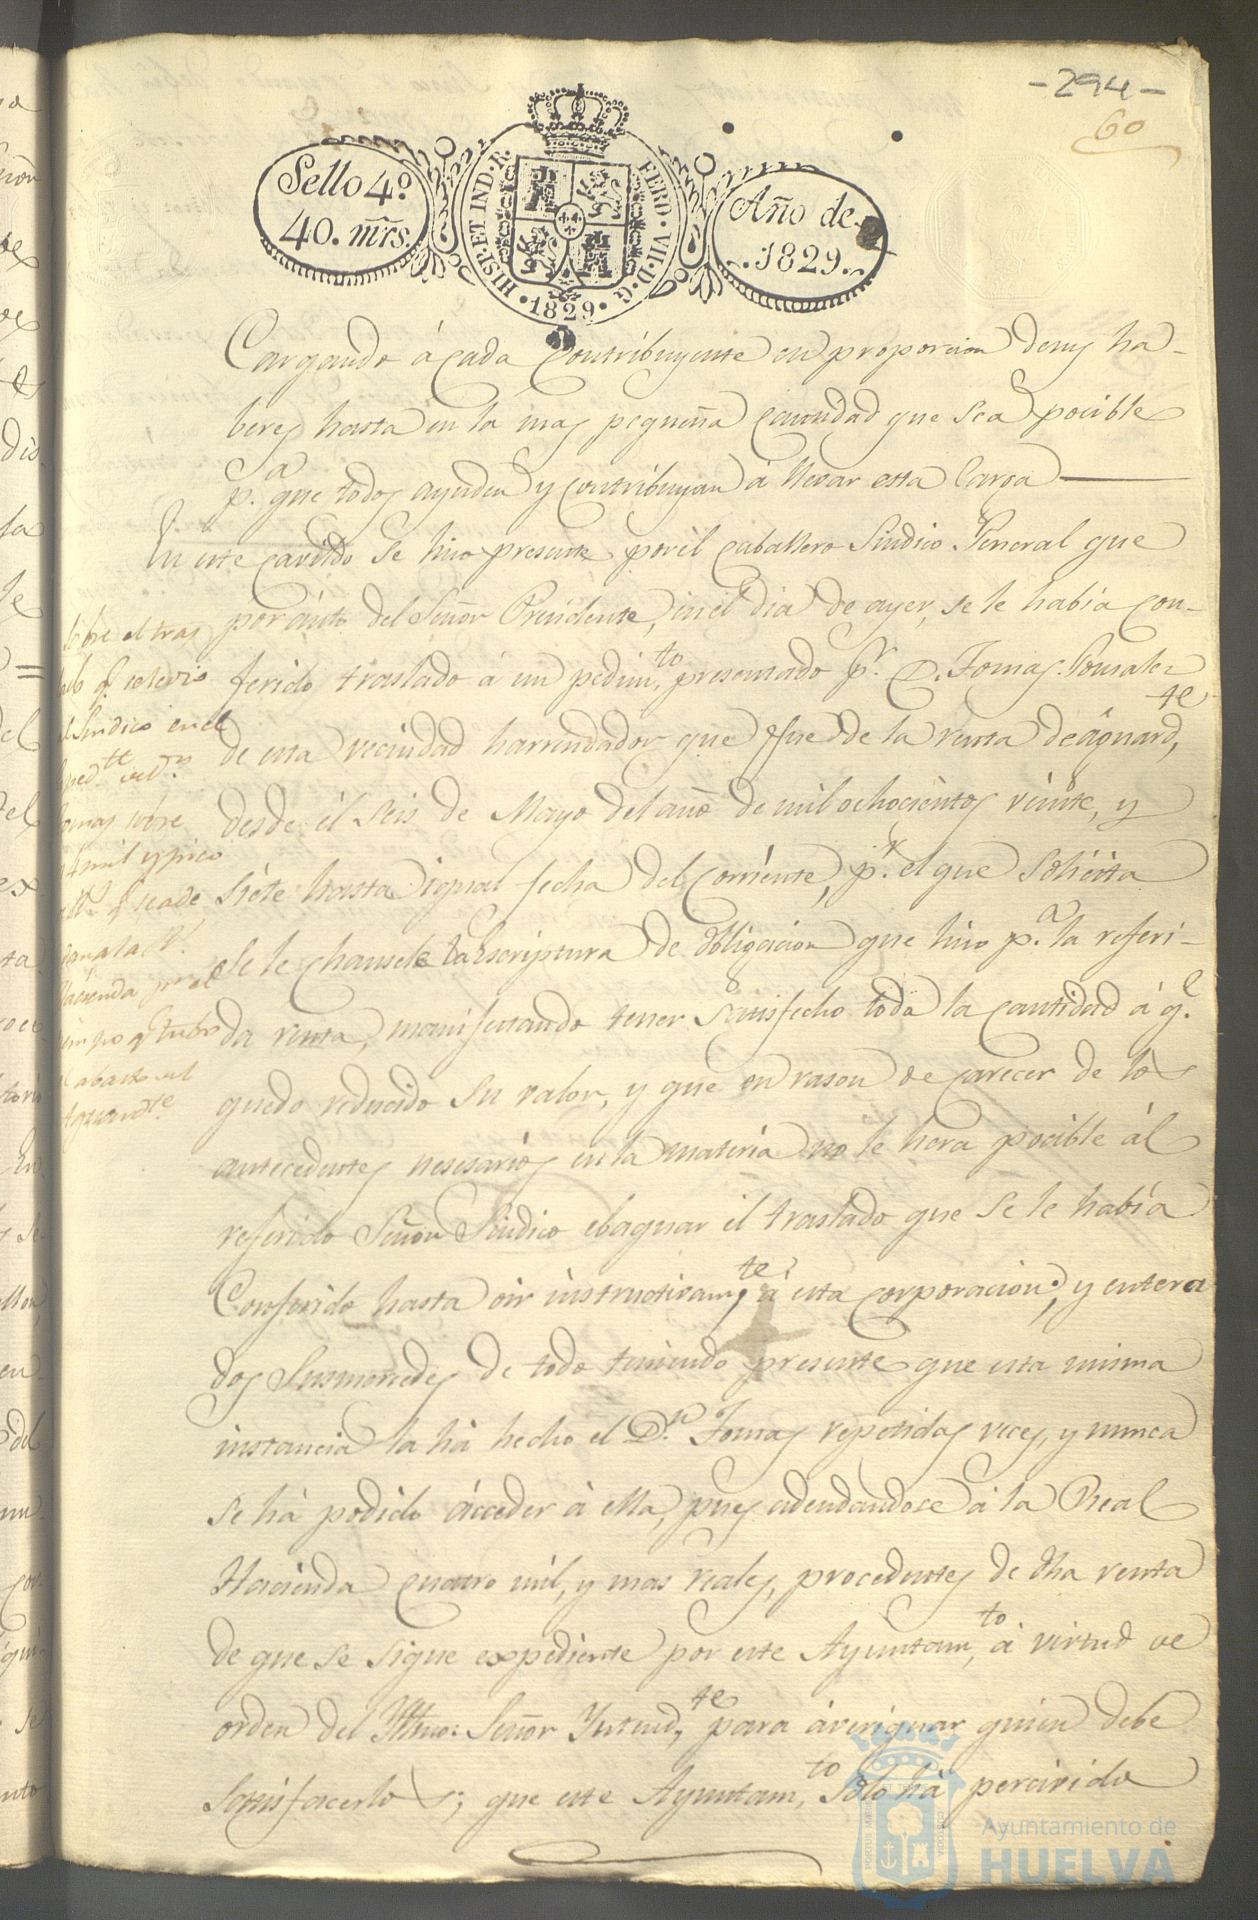 -294-
60
Sello 4º
40. mrs.
HISP. ET IND. R.
FERD. VII. D. G.
1829
Año de
1829.
Cargando á cada Contribuyente en proporcion de sus ha-
beres hasta en la mas pequeña cantidad que sea pocible
p.ª que todos ayuden y contribuyan á llevar esta Carga
En este cavildo se hizo presente por el caballero Sindico General que
por auto del Señor Presidente, en el dia de ayer, se le había con-
ferido traslado á un pedim.to presentado p.r D. Tomas Gonzalez
de esta vecindad harrendador que fue de la renta de aguard.te
desde el seis de Mayo del año de mil ochocientos veinte, y
siete hasta igual fecha del corriente, p.r el que solicita
se le chansele la Escriptura de obligacion que hizo p.a la referi-
da renta, manifestando tener satisfecho toda la cantidad á q.e
quedo reducido su valor, y que en rason de carecer de los
antecedentes nesesarios en la materia no le hera pocible ál
referido Señor Sindico ebaquar el traslado que se le había
Conferido hasta oir instructivam.te á esta corporacion; y entera
dos Susmercedes de todo teniendo presente que esta misma
instancia la há hecho el D.n Tomas repetidas veces, y nunca
se há podido ácceder á ella, pues adendandose á la Real
Hacienda cuatro mil, y mas reales, procedentes de dha renta
de que se sigue expediente por este Ayuntam.to á virtud de
orden del Yltmo: Señor Yntend.te para áveriguar quien debe
Satisfacerlos; que este Ayuntam.to solo há percivido
sobre el tras
lado q.e se le dio
al Sindico en el
exped.te de D.n
Tomas sobre
4 mil y pico
r.s q.e se ade
dan a la R.l
Hacienda p.r el
tiempo q.e tubo
el abasto del
Aguard.te
Ayuntamiento de
HUELVA